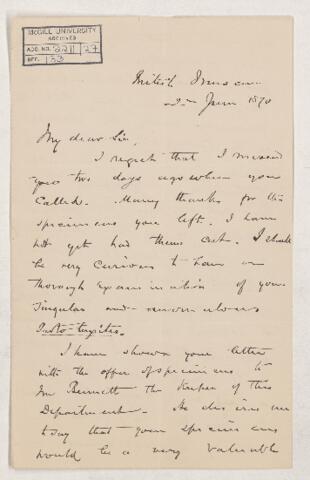 McGILL UNIVERSITY
ARCHIVES
ACC. NO. 2211 | 27
REF. 133
British Museum
2nd June 1870
My dear Sir,
I regret that I missed
you two days ago when you
called. Many thanks for the
specimens you left. I have
not yet had them cut. I shall
be very curious to have
thorough examination of your
singular and anomalous
Proto-taxites.
I have shown your letter
with the offer of specimens to
Mr Bennett the Keeper of this
Department. He desires me
to say that your specimens
would be a very valuable